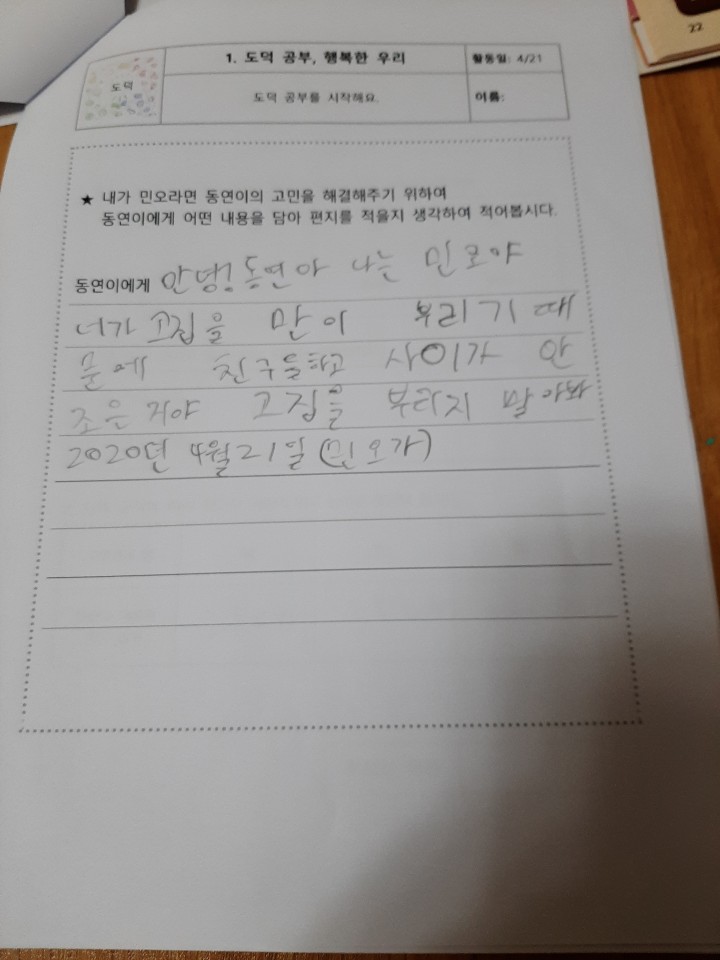 22
1. 도덕 공부, 행복한 우리
활동일: 4/21
도덕
도덕 공부를 시작해요.
이름:
★ 내가 민오라면 동연이의 고민을 해결해주기 위하여
동연이에게 어떤 내용을 담아 편지를 적을지 생각하여 적어봅시다.
동연이에게 안녕! 동연아 나는 민오야
너가 고집을 만이 부리기 때
문에 친구들하고 사이가 안
조은거야 고집을 부리지 말아봐
2020년 4월 21일 (민오가)